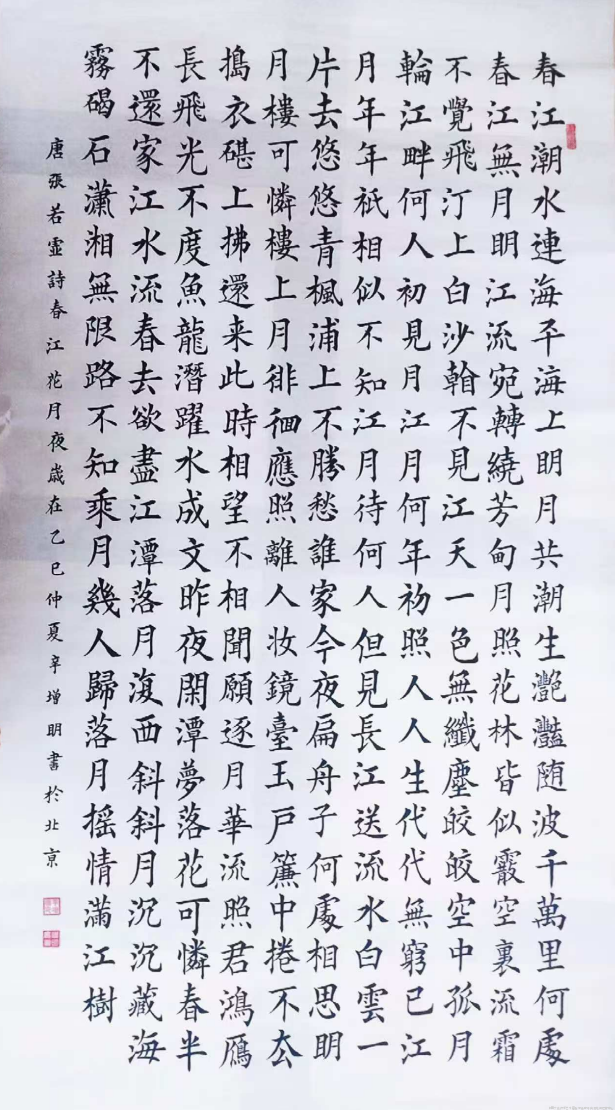 春江潮水連海平海上明月共潮生灧灧随波千萬里何處
春江無月明江流宛轉繞芳甸月照花林皆似霰空裏流霜
不覺飛汀上白沙看不見江天一色無纖塵皎皎空中孤月
輪江畔何人初見月江月何年初照人人生代代無窮已江
月年年祇相似不知江月待何人但見長江送流水白雲一
片去悠悠青楓浦上不勝愁誰家今夜扁舟子何處相思明
月樓可憐樓上月徘徊應照離人妝鏡臺玉戶簾中捲不去
搗衣碪上拂還来此時相望不相聞願逐月華流照君鴻鴈
長飛光不度魚龍潛躍水成文昨夜閑潭夢落花可憐春半
不還家江水流春去欲盡江潭落月復西斜斜月沉沉藏海
霧碣石瀟湘無限路不知乘月幾人歸落月摇情滿江樹
唐張若虛詩春江花月夜歲在乙巳仲夏辛增明書於北京